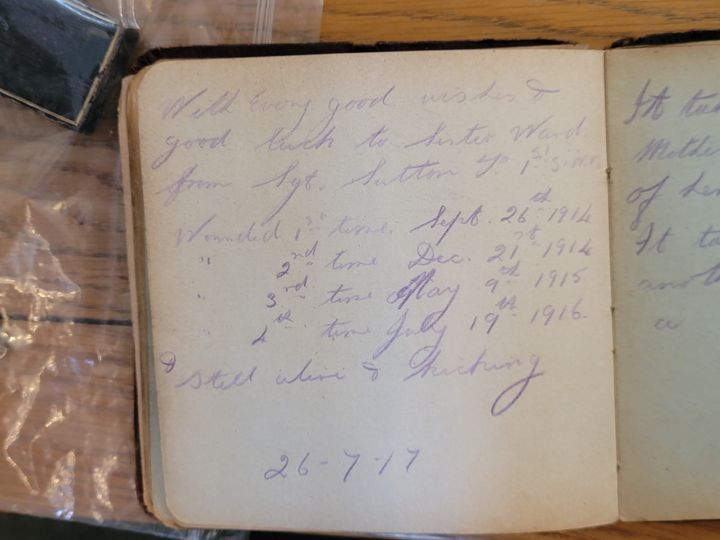 With Every good wishes &
good luck to Sister Ward.
from Sgt. Sutton 1st S.W.B.
Wounded 1st time. Sept. 26th 1914
" 2nd time Dec. 21st 1914
" 3rd time May 9th 1915
" 4th time July 19th 1916.
& Still alive & kicking
26-7-17
It
of
It
a